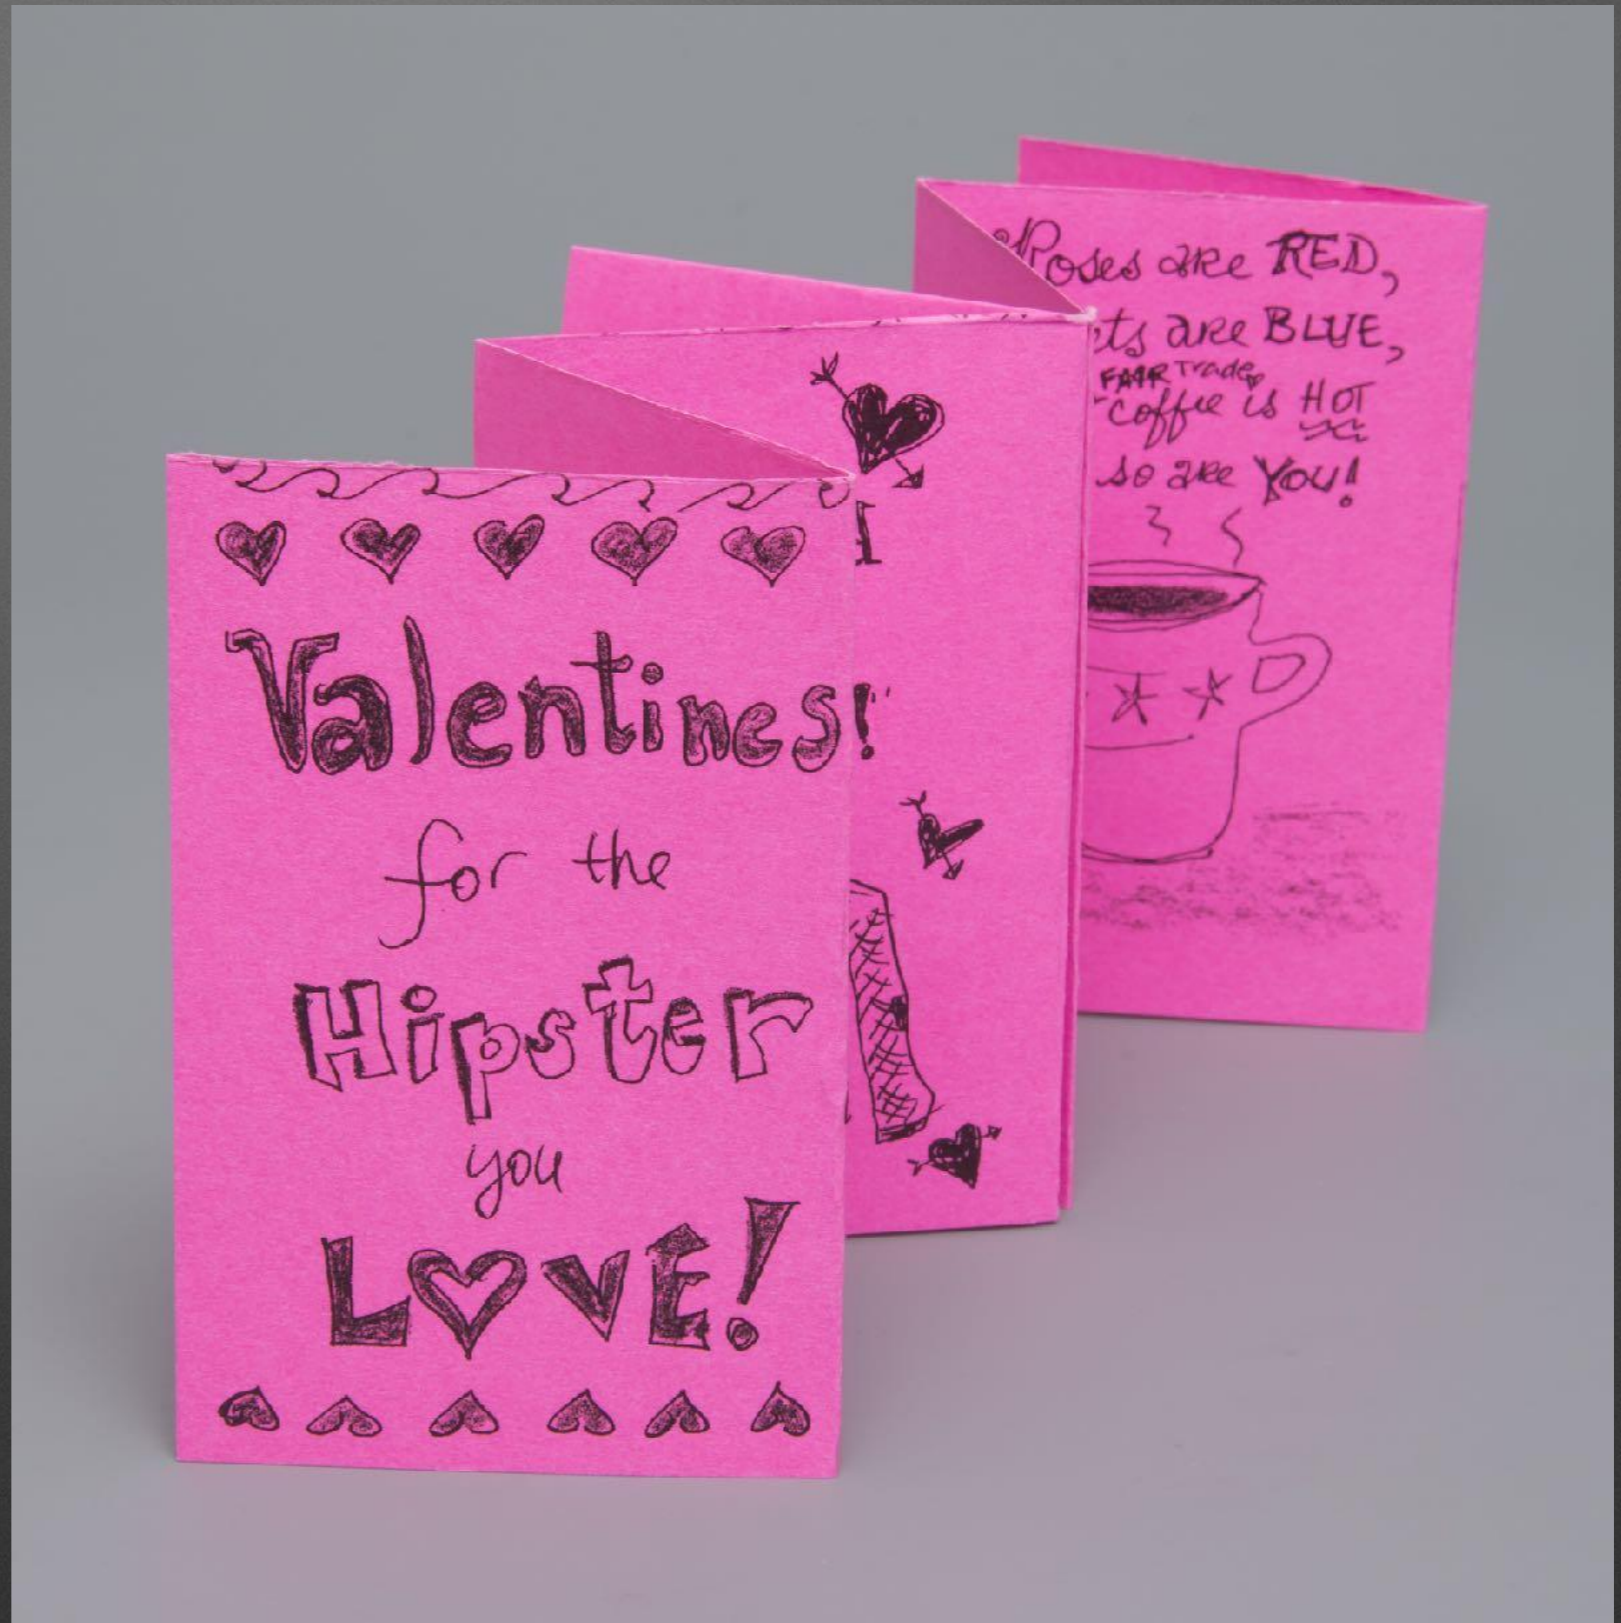 Valentines!
for the
Hipster
you
LOVE!
Roses are RED,
are BLUE,
FAIR Trade
coffee is HOT
so are YOU!